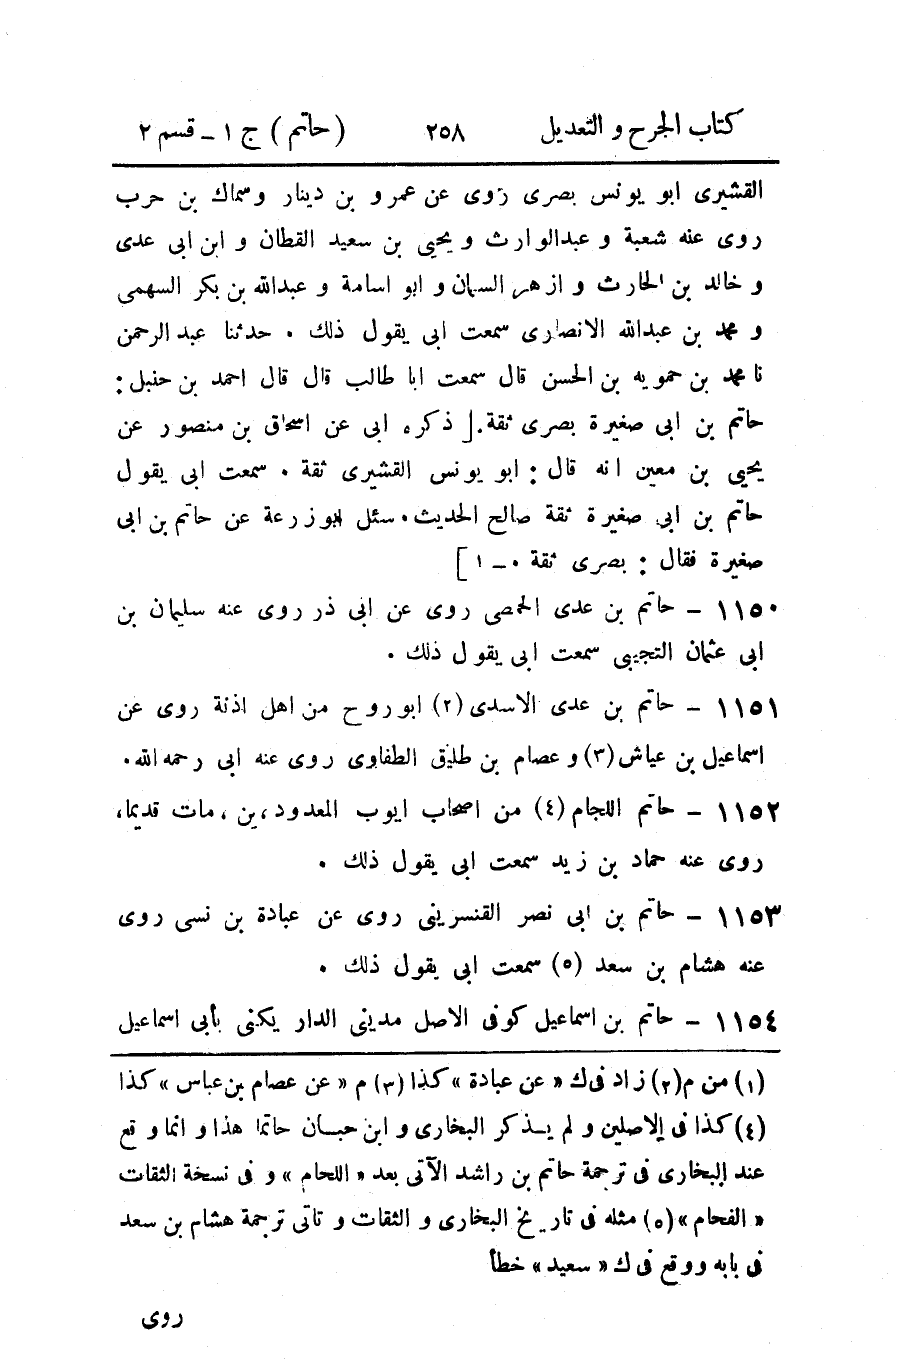 كتاب الجرح و التعديل ٢٥٨ (حاتم) ج ١ ـ قسم ٢
القشيرى ابو يونس بصرى روى عن عمرو بن دينار وسماك بن حرب
روى عنه شعبة و عبدالوارث و يحيى بن سعيد القطان و ابن ابى عدى
و خالد بن الحارث و ازهر السمان و ابو اسامة و عبدالله بن بكر السهمى
و محمد بن عبدالله الانصارى سمعت ابى يقول ذلك . حدثنا عبد الرحمن
نا محمد بن حمويه بن الحسن قال سمعت ابا طالب قال قال احمد بن حنبل :
حاتم بن ابى صغيرة بصرى ثقة. [ ذكره ابى عن اسحاق بن منصور عن
يحيى بن معين انه قال : ابو يونس القشيرى ثقة . سمعت ابى يقول
حاتم بن ابى صغيرة ثقة صالح الحديث . سئل ابو زرعة عن حاتم بن ابى
صغيرة فقال : بصرى ثقة . ـ ١ ]
١١٥٠ ـ حاتم بن عدى الحمصى روى عن ابى ذر روى عنه سليمان بن
ابى عثمان التجيبى سمعت ابى يقول ذلك .
١١٥١ ـ حاتم بن عدى الاسدى (٢) ابو روح من اهل اذنة روى عن
اسماعيل بن عياش (٣) و عصام بن طليق الطفاوى روى عنه ابى رحمه الله .
١١٥٢ ـ حاتم اللجام (٤) من اصحاب ايوب المعدودين ، مات قديما،
روى عنه حماد بن زيد سمعت ابى يقول ذلك .
١١٥٣ ـ حاتم بن ابى نصر القنسرينى روى عن عبادة بن نسى روى
عنه هشام بن سعد (٥) سمعت ابى يقول ذلك .
١١٥٤ ـ حاتم بن اسماعيل كوفى الاصل مدينى الدار يكنى بأبى اسماعيل
(١) من م (٢) زاد فى ك « عن عبادة » كذا (٣) م « عن عصام بن عباس » كذا
(٤) كذا فى الاصلين و لم يـذكر البخارى و ابن حبـان حاتما هذا و انما وقع
عند البخارى فى ترجمة حاتم بن راشد الآتى بعد « اللحام » و فى نسخة الثقات
« الفحام » (٥) مثله فى تاريخ البخارى و الثقات و تاتى ترجمة هشام بن سعد
فى بابه ووقع فى ك « سعيد » خطأ
روى